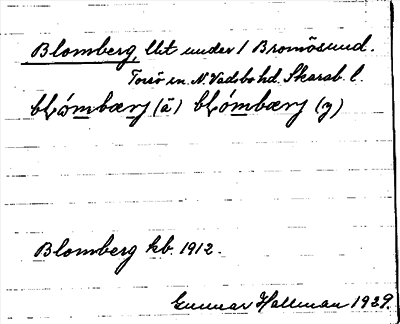 Blomberg, lht under 1 Bromösund.
Torsö sn. N. Vadsbo hd. Skarab. l.
blómbærj (ä) blómbærj (y)
Blomberg kb. 1912.
Gunnar Hallman 1929.